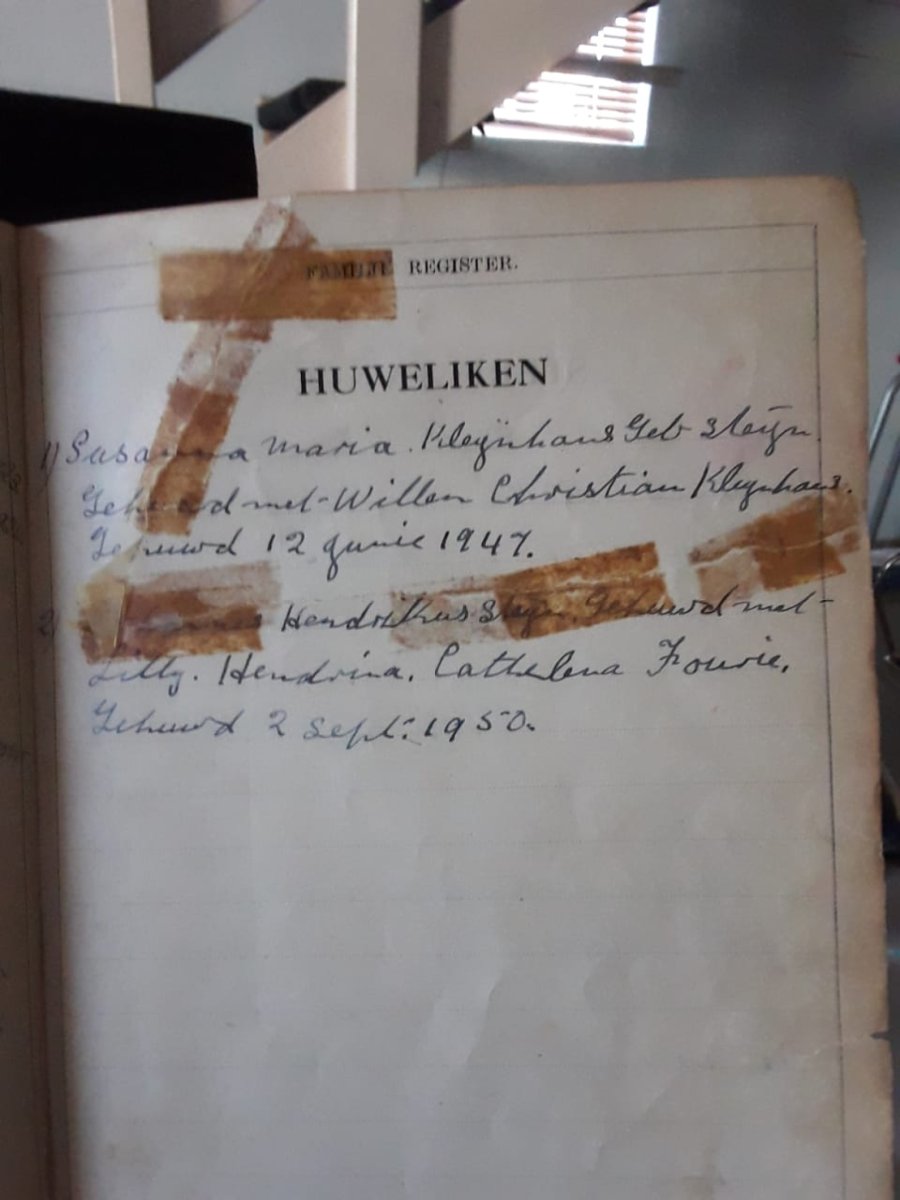 FAMILIE REGISTER.
HUWELIKEN
1) Susanna Maria. Kleynhans Geb Steyn.
Gehuwd met Willem Christian Kleynhans.
Gehuwd 12 Junie 1947.
2) Hendrikus Steyn. Gehuwd met
Litty. Hendrina. Cathelena Fourie.
Gehuwd 2 Sept. 1950.